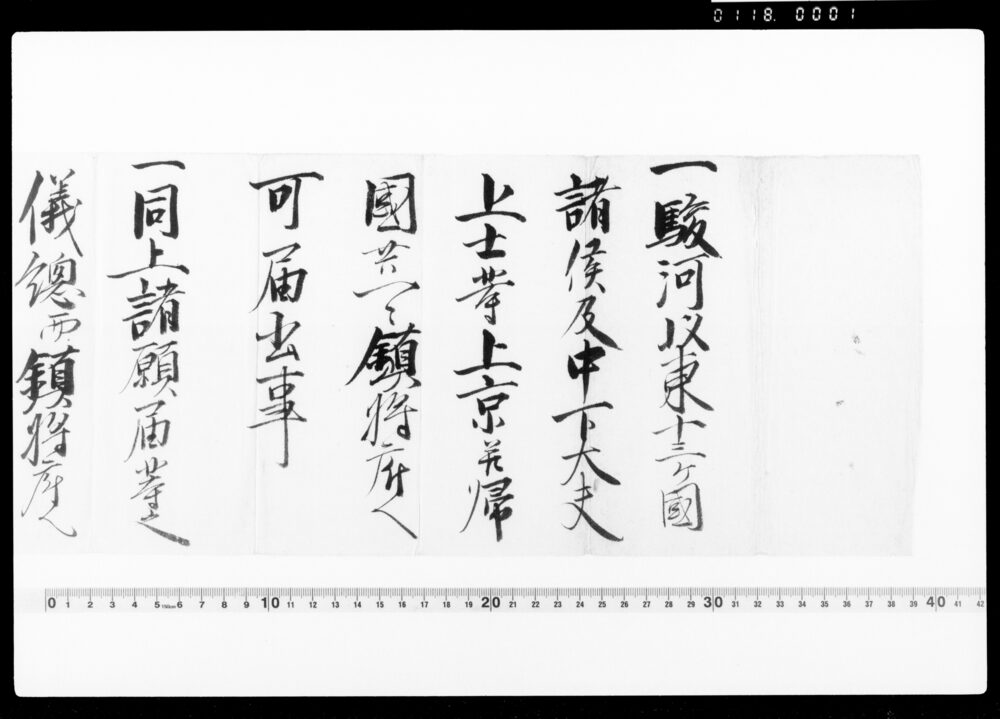 0118. 0001
一駿河以東十三ケ國
諸侯及中下大夫
上士等上京并帰
國共一々鎮将府へ
可届出事
一同上諸願届等之
儀總而鎮将府へ
0 1 2 3 4 5 150cm 6 7 8 9 10 11 12 13 14 15 16 17 18 19 20 21 22 23 24 25 26 27 28 29 30 31 32 33 34 35 36 37 38 39 40 41 42